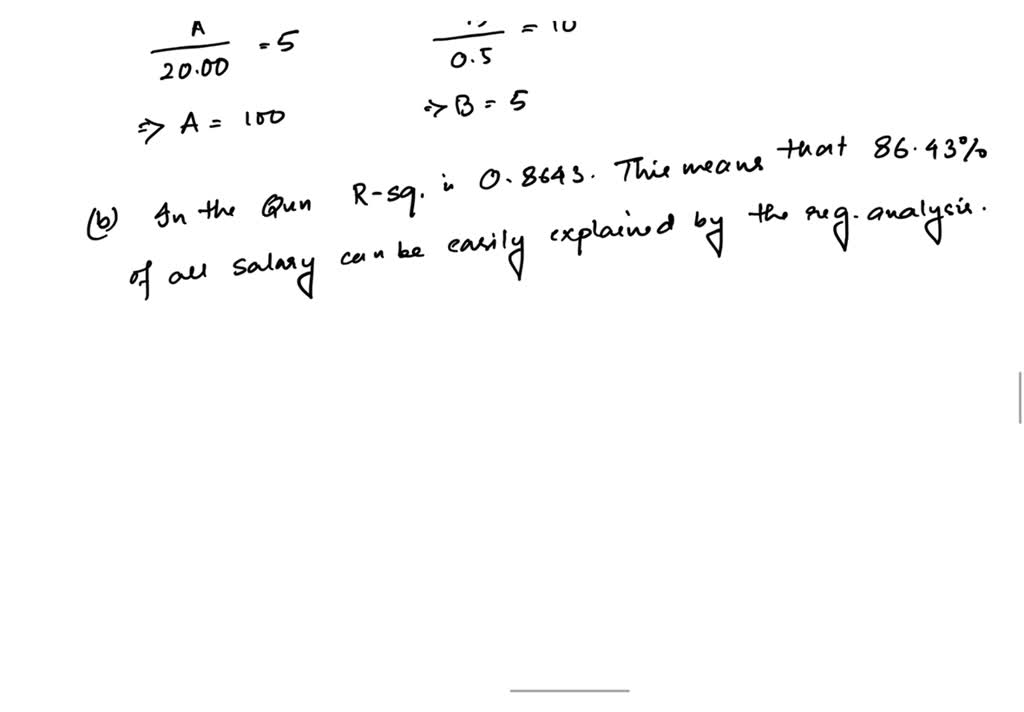 A
20.00 = 5
0.5 = 10
⇒ A = 100
⇒ B = 5
(b) In the Qun R-sq. is 0.8643. This means that 86.43%
of all salary can be easily explained by the reg. analysis.